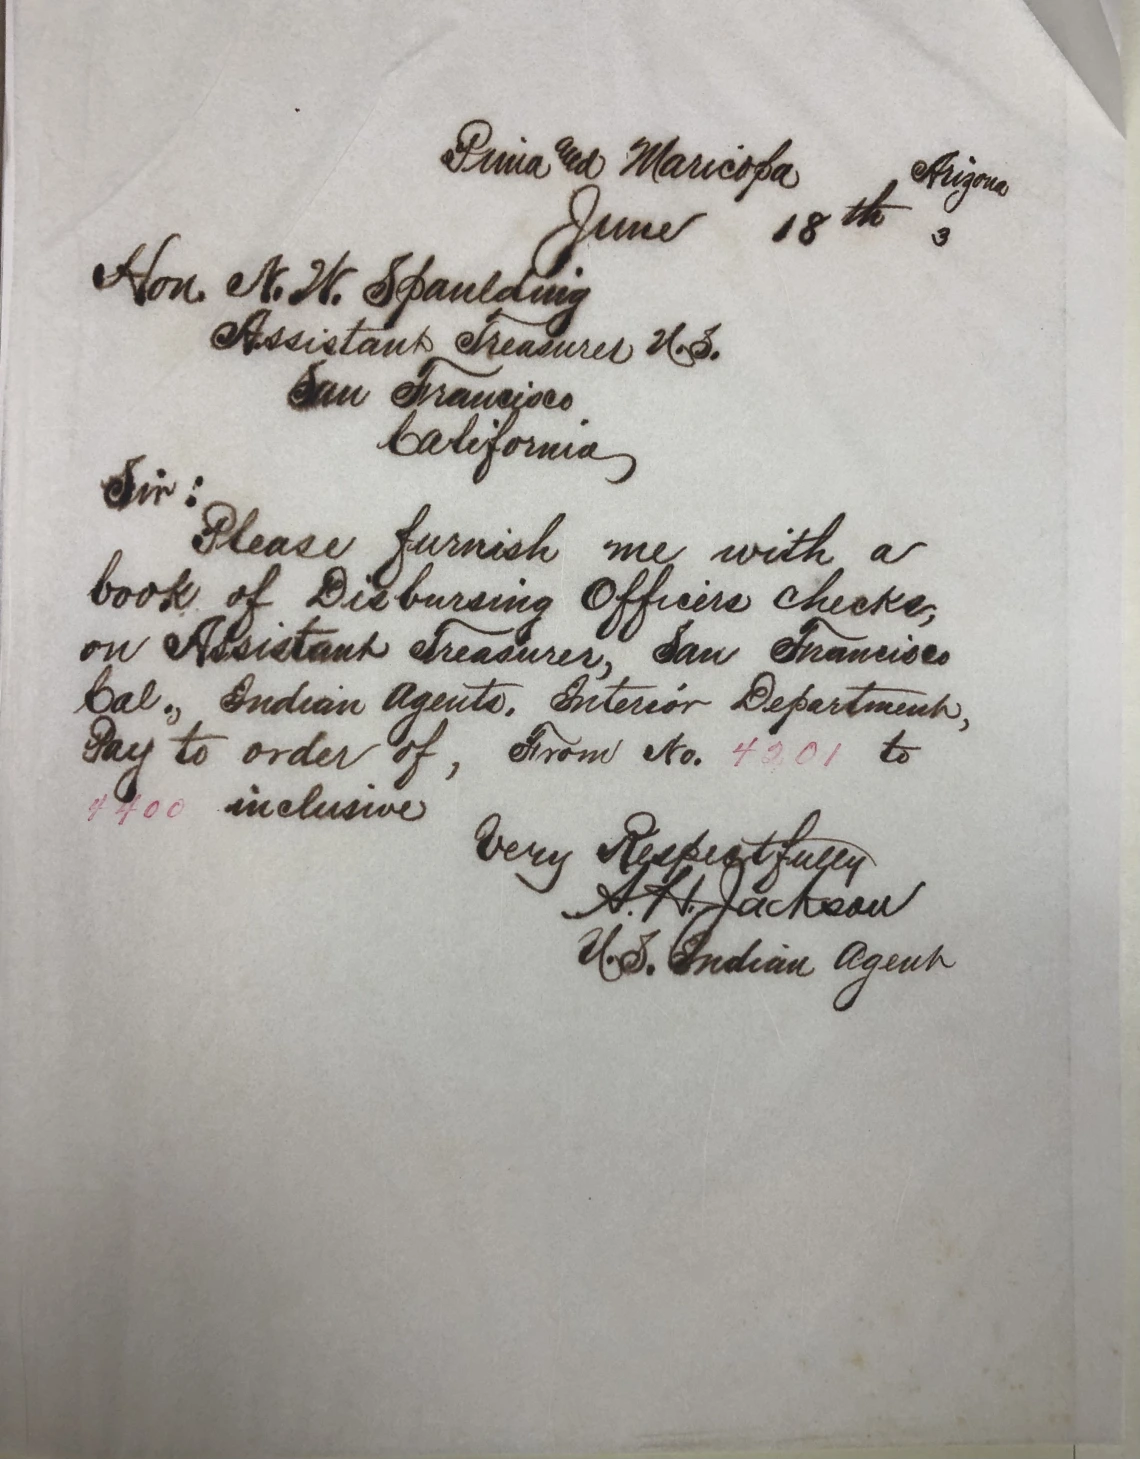 Pima and Maricopa Arizona
June 18th 3
Hon. N. W. Spaulding
Assistant Treasurer U.S.
San Francisco
California
Sir:
Please furnish me with a
book of Disbursing Officers checks,
on Assistant Treasurer, San Francisco
Cal., Indian Agents. Interior Department,
Pay to order of, From No. 4301 to
4400 inclusive
Very Respectfully
A. H. Jackson
U.S. Indian Agent